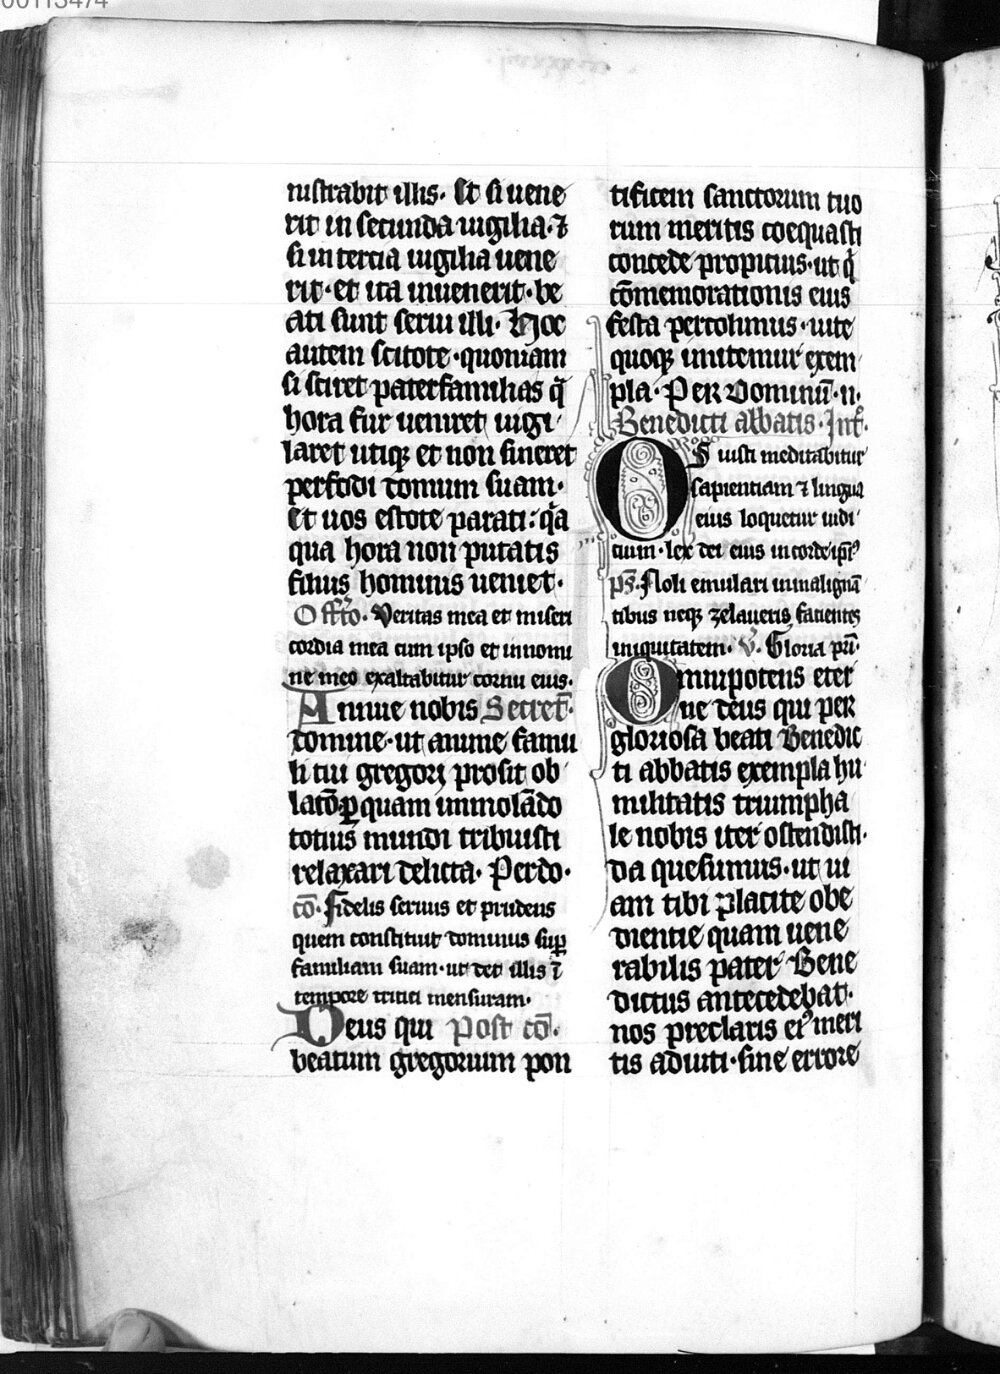 00113474
nistrabit illis. Et si uene
rit in secunda uigilia. ⁊
si in tercia uigilia uene
rit. et ita inuenerit. be
ati sunt serui illi. Hoc
autem scitote. quoniam
si sciret paterfamilias q̄
hora fur ueniret uigi
laret utiqꝫ et non sineret
perfodi domum suam.
Et uos estote parati: q̄a
qua hora non putatis
filius hominis ueniet.
Offr̄o. Veritas mea et miseri
cordia mea cum ipso et in nomi
ne meo exaltabitur cornu eius.
Annue nobis Secret̄.
domine. ut anime famu
li tui gregorij prosit ob
latō. ꝑ quam immolādo
totius mundi tribuisti
relaxari delicta. Per do.
cō. Fidelis seruus et prudens
quem constituit dominus suꝑ
familiam suam. ut det illis ī
tempore tritici mensuram.
Deus qui Post cō.
beatum gregorium pon
tificem sanctorum tuo
rum meritis coequasti
concede propicius. ut q̄
cōmemorationis eius
festa percolimus. uite
quoqꝫ imitemur exem
pla. Per dominū. n.
Benedicti abbatis. Int̄.
OS iusti meditabitur
sapientiam ⁊ lingua
eius loquetur iudi
cium. lex dei eius in corde ip̄iꝰ
p̄s. Noli emulari in malignā
tibus neqꝫ zelaueris facientes
iniquitatem. V̄. Gloria pr̄i.
Omnipotens eter
ne deus qui per
gloriosa beati Benedic
ti abbatis exempla hu
militatis triumpha
le nobis iter ostendisti.
da quesumus. ut ui
am tibi placite obe
dientie quam uene
rabilis pater Bene
dictus antecedebat.
nos preclaris eiꝰ meri
tis adiuti. sine errore